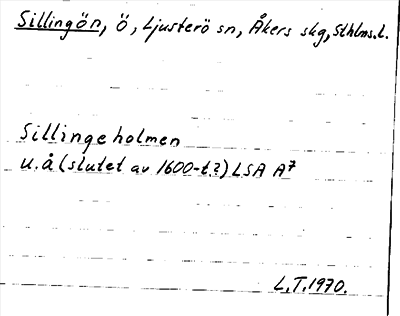 Sillingön, ö, Ljusterö sn, Åkers skg, Sthlms.l.
Sillingeholmen
u.å (slutet av 1600-t?) LSA A7
L.T.1970.